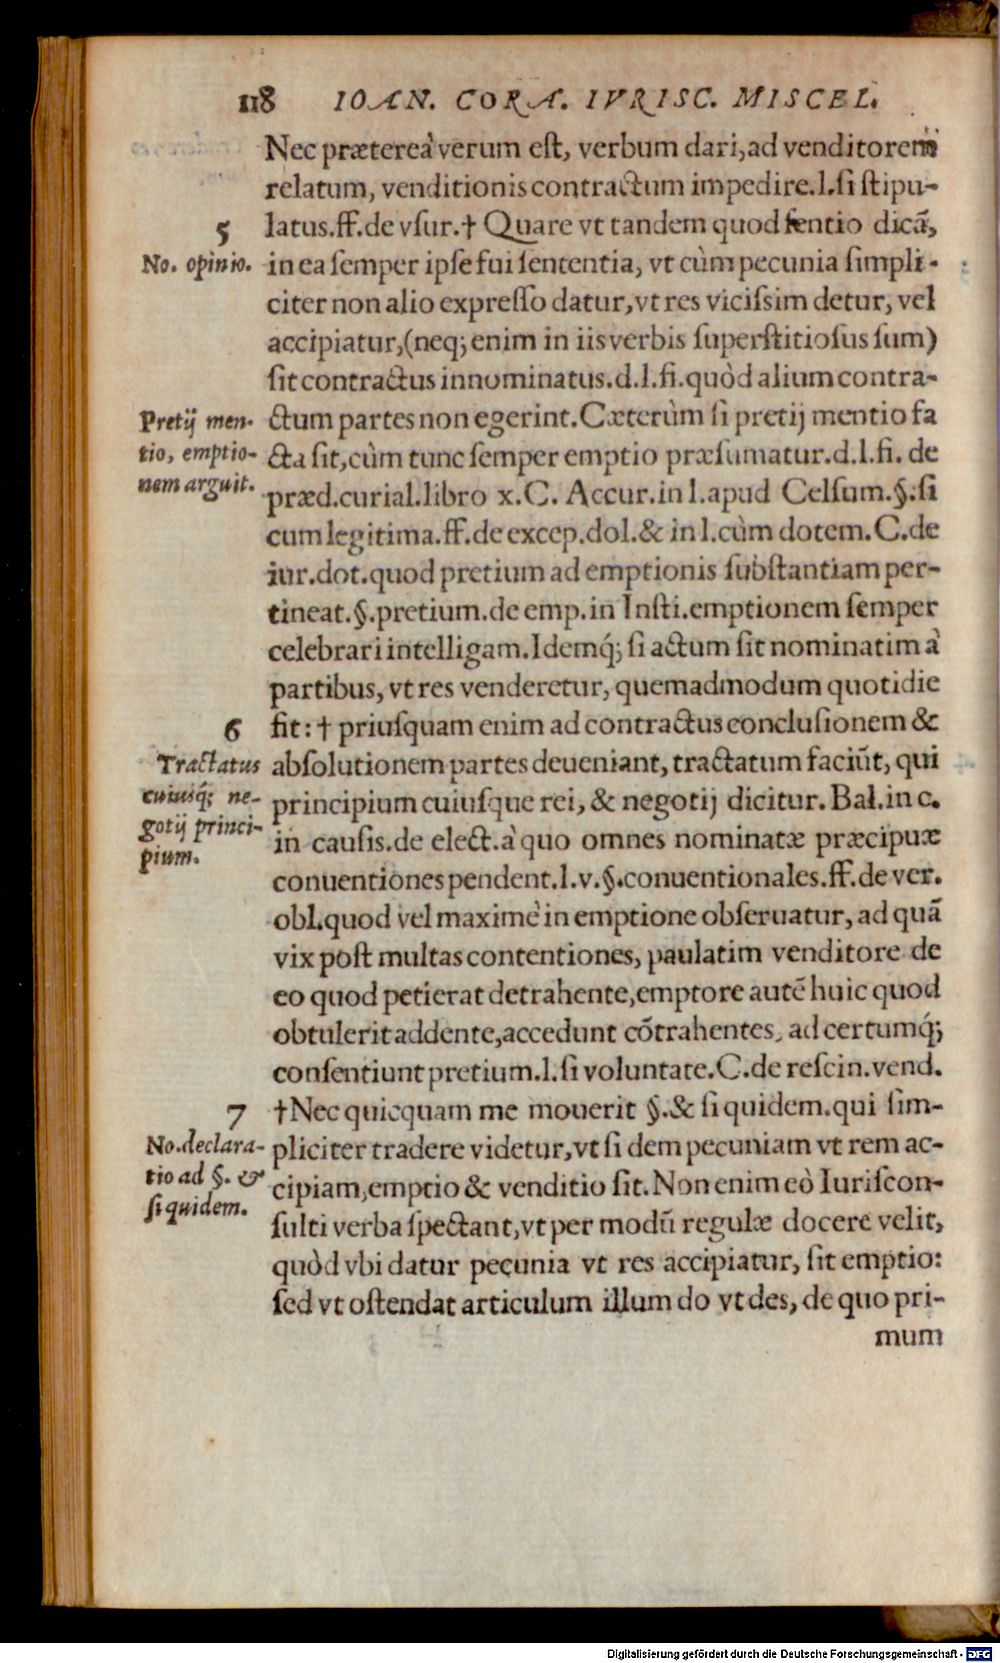 118 IOAN. CORA. IVRISC. MISCEL.
Nec præterea verum est, verbum dari, ad venditorem
relatum, venditionis contractum impedire.l.si stipu-
5
latus.ff.de vsur.† Quare vt tandem quod sentio dicã,
No. opinio.
in ea semper ipse fui sententia, vt cùm pecunia simpli-
citer non alio expresso datur, vt res vicissim detur, vel
accipiatur, (neq; enim in iis verbis superstitiosus sum)
sit contractus innominatus.d.l.fi.quòd alium contra-
Pretij men-
ctum partes non egerint. Cæterùm si pretij mentio fa
tio, emptio-
cta sit, cùm tunc semper emptio præsumatur.d.l.fi. de
nem arguit.
præd.curial.libro x.C. Accur.in l.apud Celsum.§.si
cum legitima.ff.de excep.dol.& in l.cùm dotem.C.de
iur.dot.quod pretium ad emptionis substantiam per-
tineat.§.pretium.de emp.in Insti.emptionem semper
celebrari intelligam. Idemq́; si actum sit nominatim à
partibus, vt res venderetur, quemadmodum quotidie
6
fit: † priusquam enim ad contractus conclusionem &
Tractatus
absolutionem partes deueniant, tractatum faciũt, qui
cuiusq́; ne-
principium cuiusque rei, & negotij dicitur. Bal.in c.
gotij princi-
in causis.de elect.à quo omnes nominatæ præcipuæ
pium.
conuentiones pendent.l.v.§.conuentionales.ff.de ver.
obl.quod vel maximè in emptione obseruatur, ad quã
vix post multas contentiones, paulatim venditore de
eo quod petierat detrahente, emptore autẽ huic quod
obtulerit addente, accedunt cõtrahentes, ad certumq́;
consentiunt pretium.l.si voluntate.C.de rescin.vend.
7
†Nec quicquam me mouerit §.& si quidem.qui sim-
No.declara-
pliciter tradere videtur, vt si dem pecuniam vt rem ac-
tio ad §. &
cipiam, emptio & venditio sit. Non enim eò Iuriscon-
si quidem.
sulti verba spectant, vt per modũ regulæ docere velit,
quòd vbi datur pecunia vt res accipiatur, sit emptio:
sed vt ostendat articulum illum do vt des, de quo pri-
mum
Digitalisierung gefördert durch die Deutsche Forschungsgemeinschaft - DFG